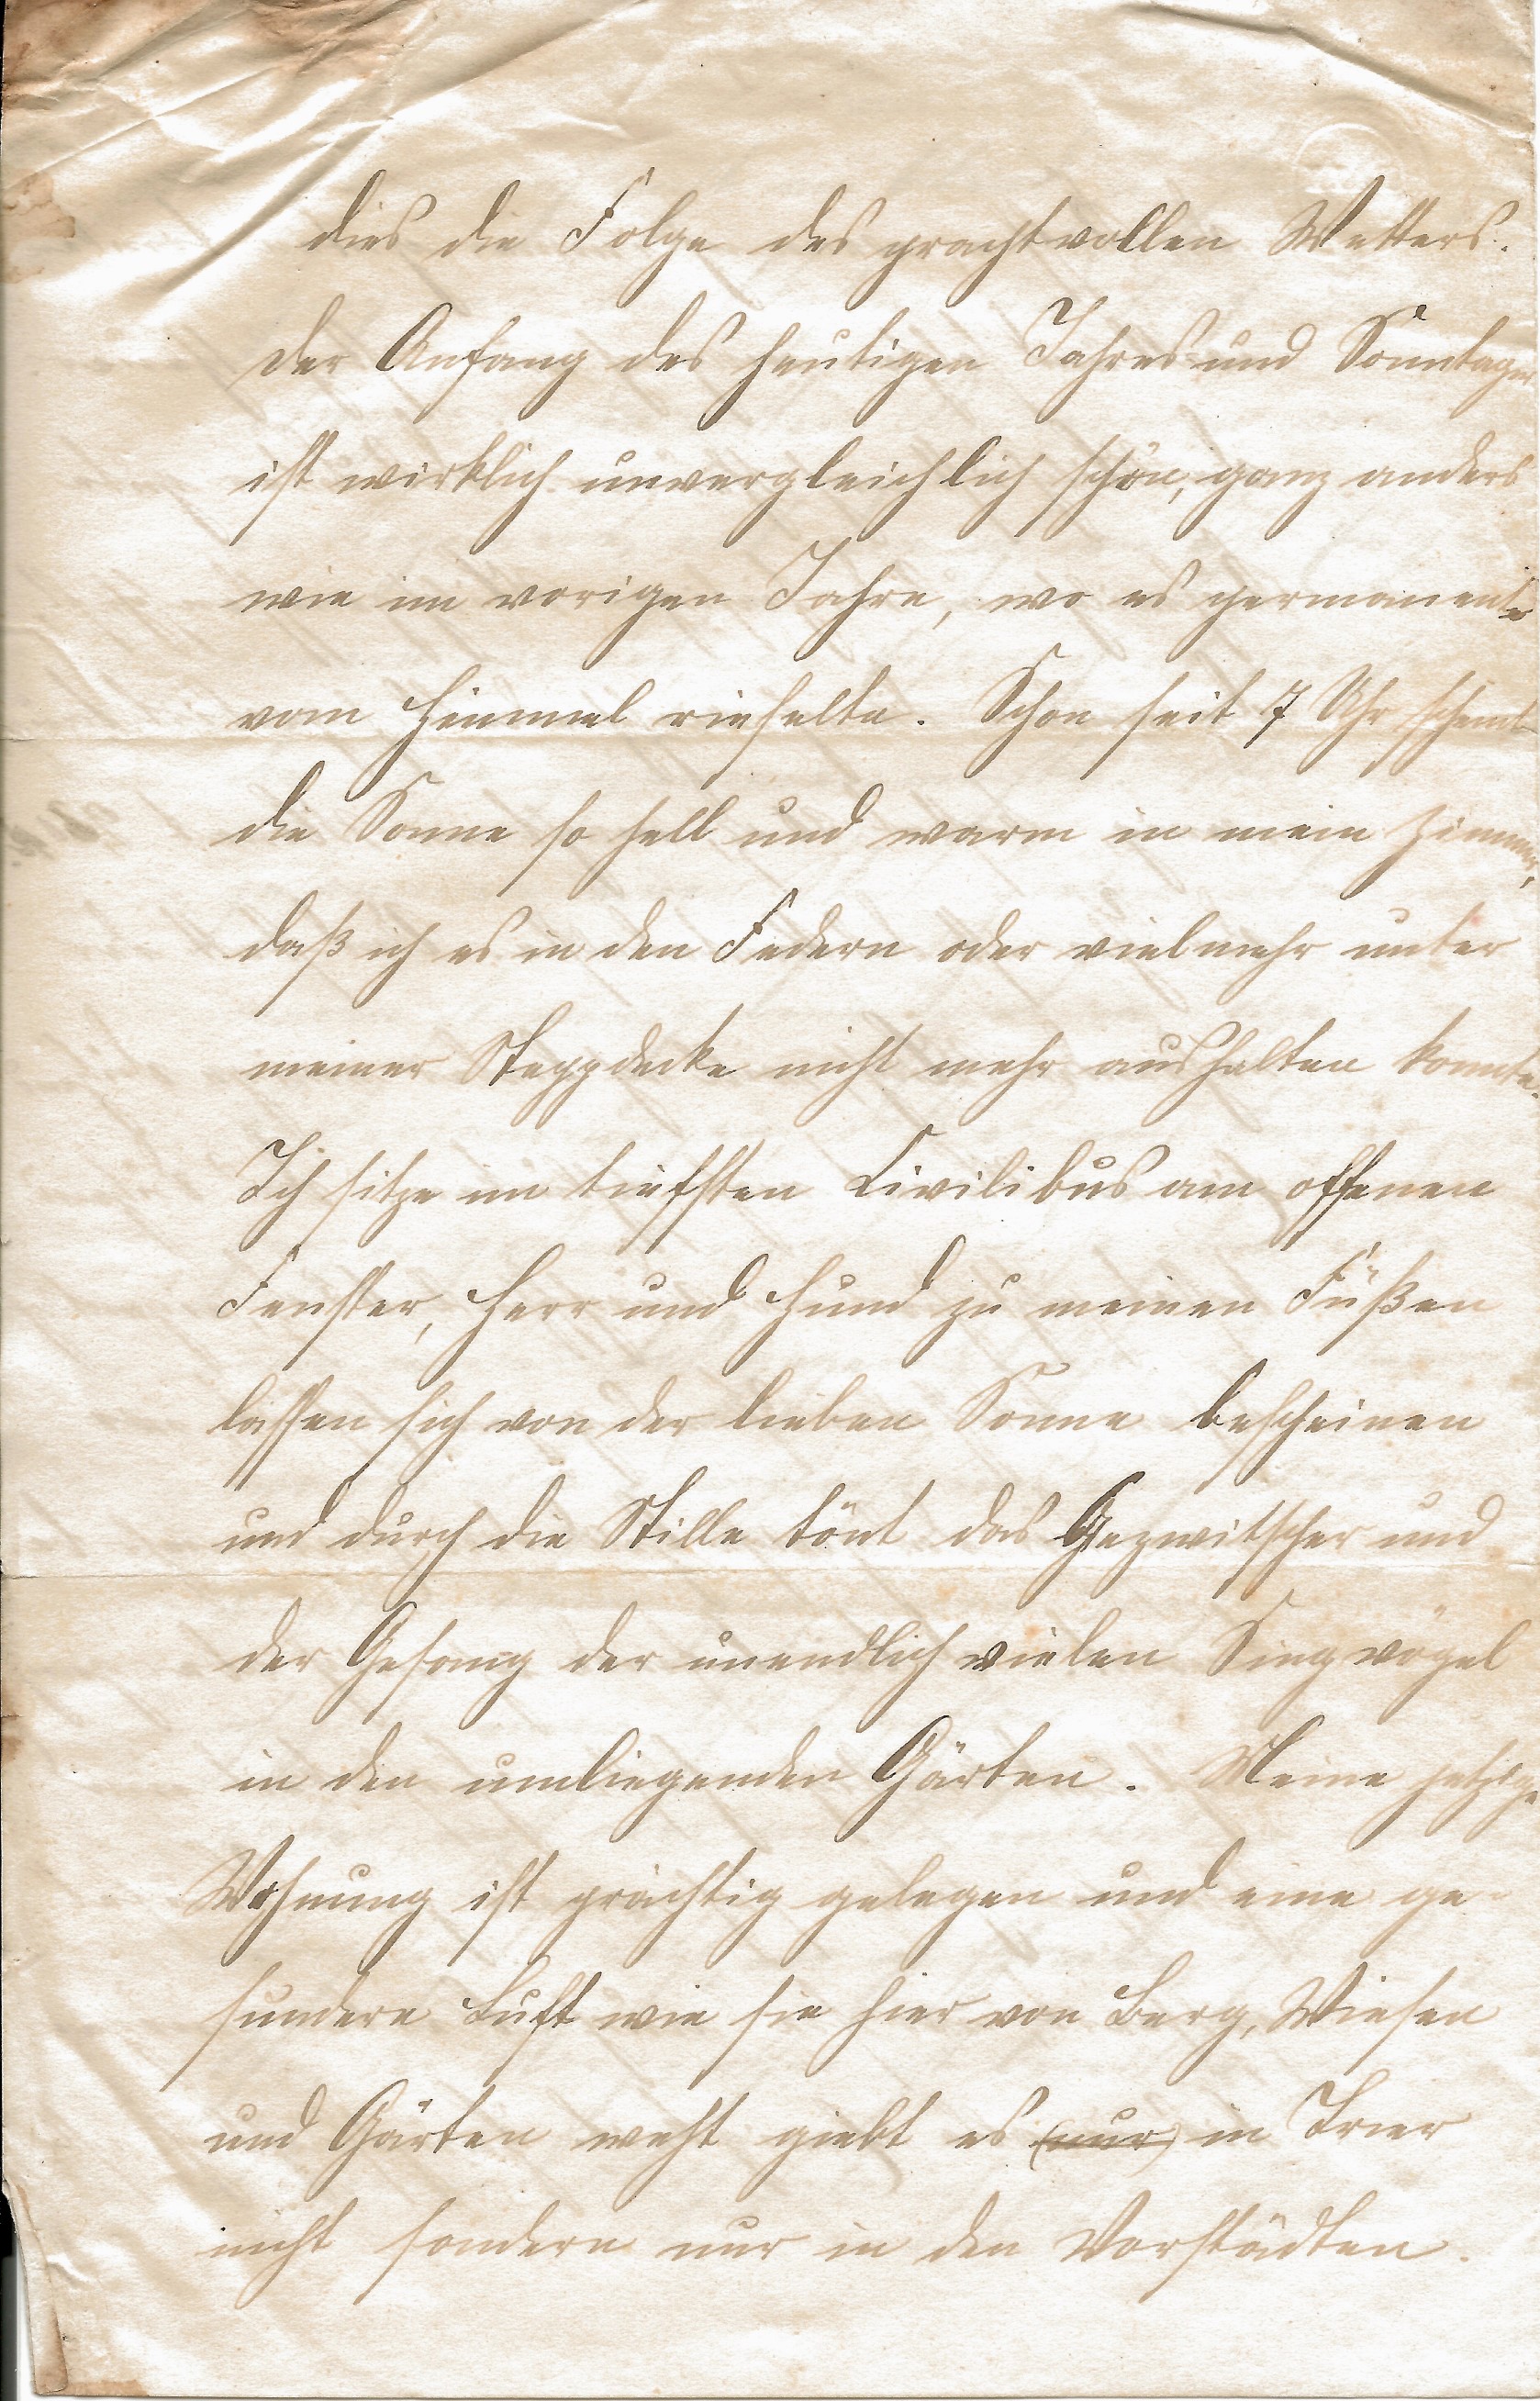 dies die Folge des prachtvollen Wetters.
der Anfang des heutigen Jahres und Sonntages
ist wirklich unvergleichlich schön, ganz anders
wie im vorigen Jahre, wo es permanent
vom Himmel rieselte. Schon seit 7 Uhr scheint
die Sonne so hell und warm in mein Zimmer,
daß ich es in den Federn oder vielmehr unter
meiner Steppdecke nicht mehr aushalten konnte.
Ich sitze im tiefsten Civilibus am offenen
Fenster, Herr und Hund zu meinen Füßen
lassen sich von der lieben Sonne bescheinen
und durch die Stille tönt das Gezwitscher und
der Gesang der unendlich vielen Singvögel
in den umliegenden Gärten. Meine jetzige
Wohnung ist prächtig gelegen und eine ge-
sundere Luft wie sie hier von Berg, Wiesen
und Gärten weht giebt es (nur) in Trier
nicht sondern nur in den Vorstädten.